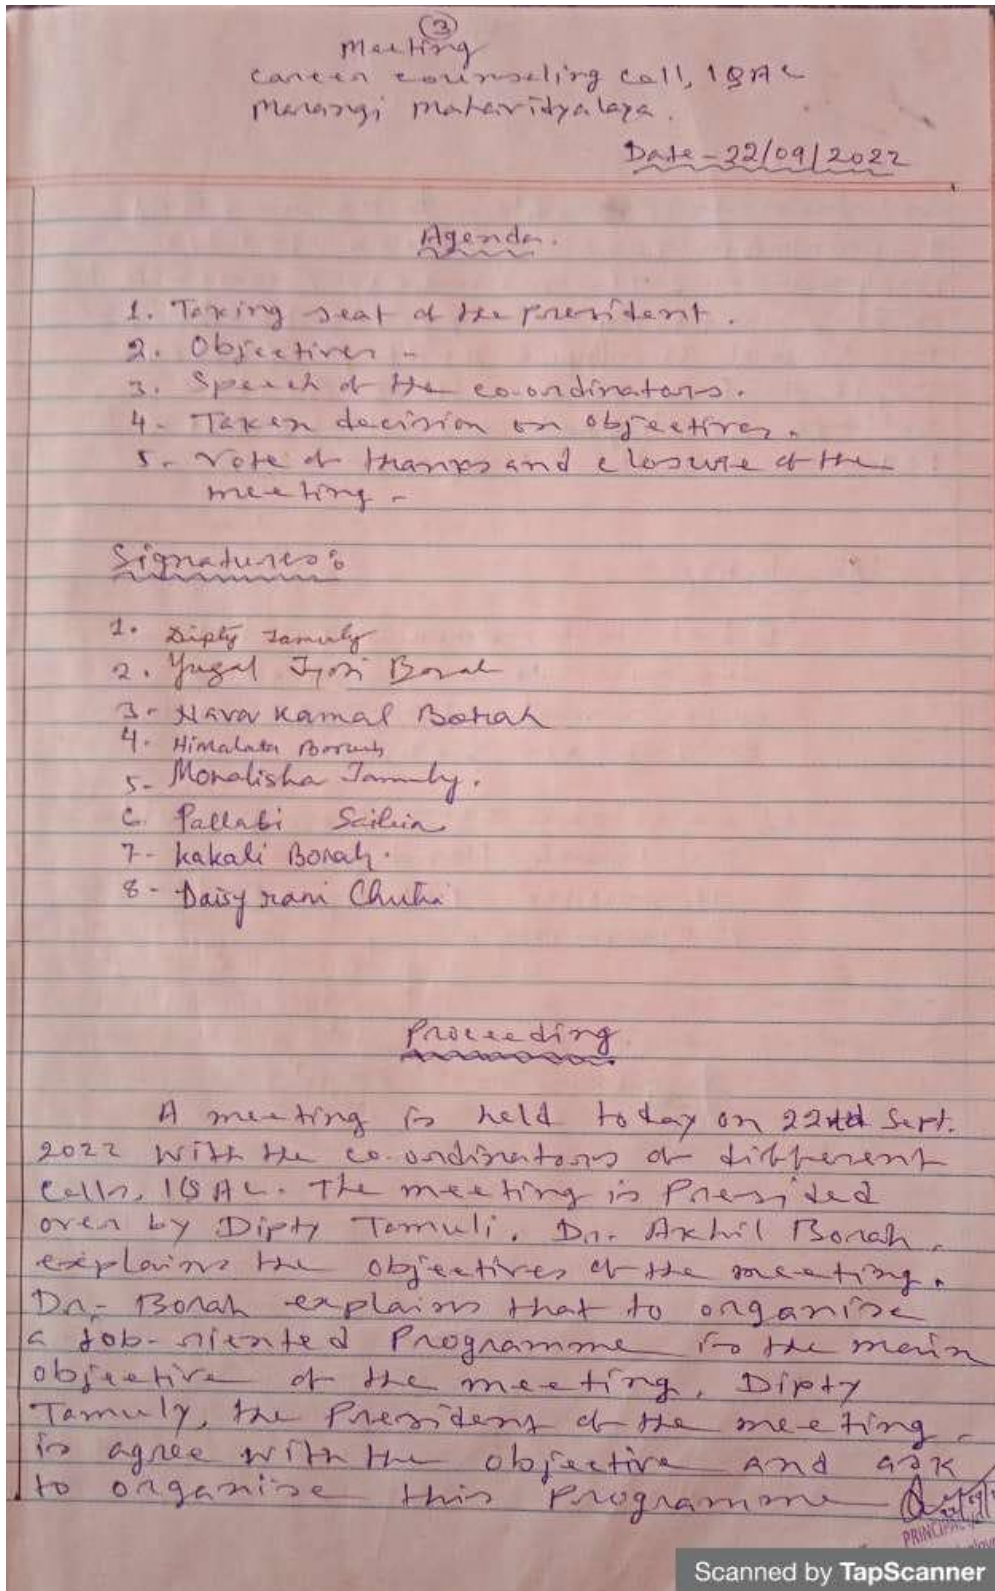 3
Meeting
Career counseling cell, IQAC
Marangi Mahavidyalaya.
Date - 22/09/2022
Agenda.
1. Taking seat of the president.
2. Objectives -
3. Speech of the co-ordinators.
4. Taken decision on objectives.
5. Vote of thanks and closure of the
meeting -
Signatures:
1. Dipty Tamuly
2. Yugal Jyoti Borah
3- Nava Kamal Borah
4. Himalata Borah
5- Monalisha Tamuly.
6. Pallabi Saikia
7- Kakali Borah.
8- Daisy rani Chutia
Proceeding
A meeting is held today on 22nd Sept.
2022 with the co-ordinators of different
cells, IQAC. The meeting is Presided
over by Dipty Tamuli. Dr. Akhil Borah
explains the objectives of the meeting.
Dr. Borah explains that to organise
a Job-riented Programme is the main
objective of the meeting. Dipty
Tamuly, the President of the meeting
is agree with the objective and ask
to organise this Programme
PRINCIPAL
Scanned by TapScanner